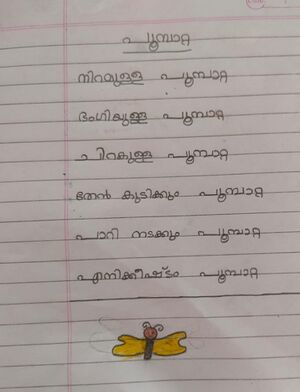 പൂമ്പാറ്റ
നിറമുള്ള പൂമ്പാറ്റ
ഭംഗിയുള്ള പൂമ്പാറ്റ
ചിറകുള്ള പൂമ്പാറ്റ
തേൻ കുടിക്കും പൂമ്പാറ്റ
പാറി നടക്കും പൂമ്പാറ്റ
എനിക്കിഷ്ടം പൂമ്പാറ്റ